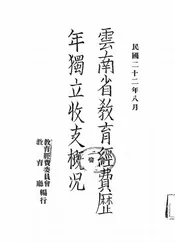 民國二十二年八月
雲南省教育經費歷
年獨立收支概況
教育經費委員會
教育廳編行